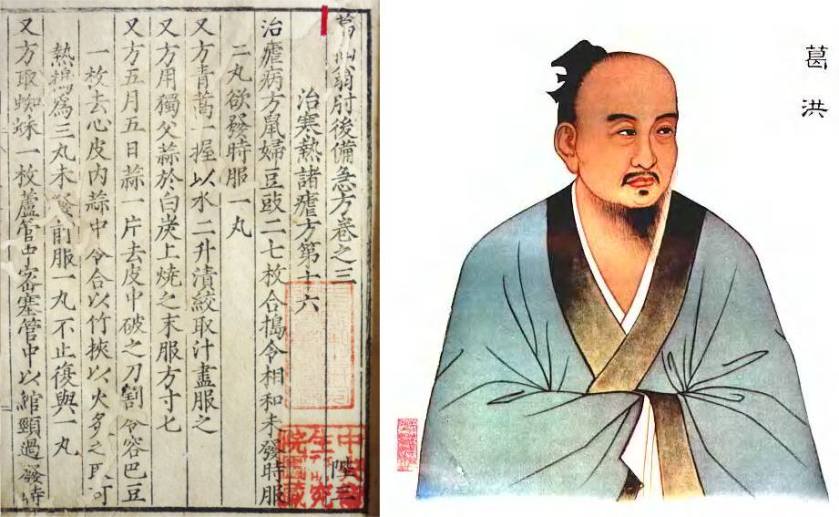 葛仙翁肘後備急方卷之三
治寒熱諸瘧方第十六
治瘧病方鼠婦豆豉二七枚合搗令相和未發時服
二丸欲發時服一丸
又方青蒿一握以水二升漬絞取汁盡服之
又方用獨父蒜於白炭上燒之末服方寸匕
又方五月五日蒜一片去皮中破之刀割令容巴豆
一枚去心皮內蒜中令合以竹挾以火炙之取可
熱搗爲三丸未發前服一丸不止復與一丸
又方取蜘蛛一枚蘆管中密塞管中以綰頸過發時
葛洪